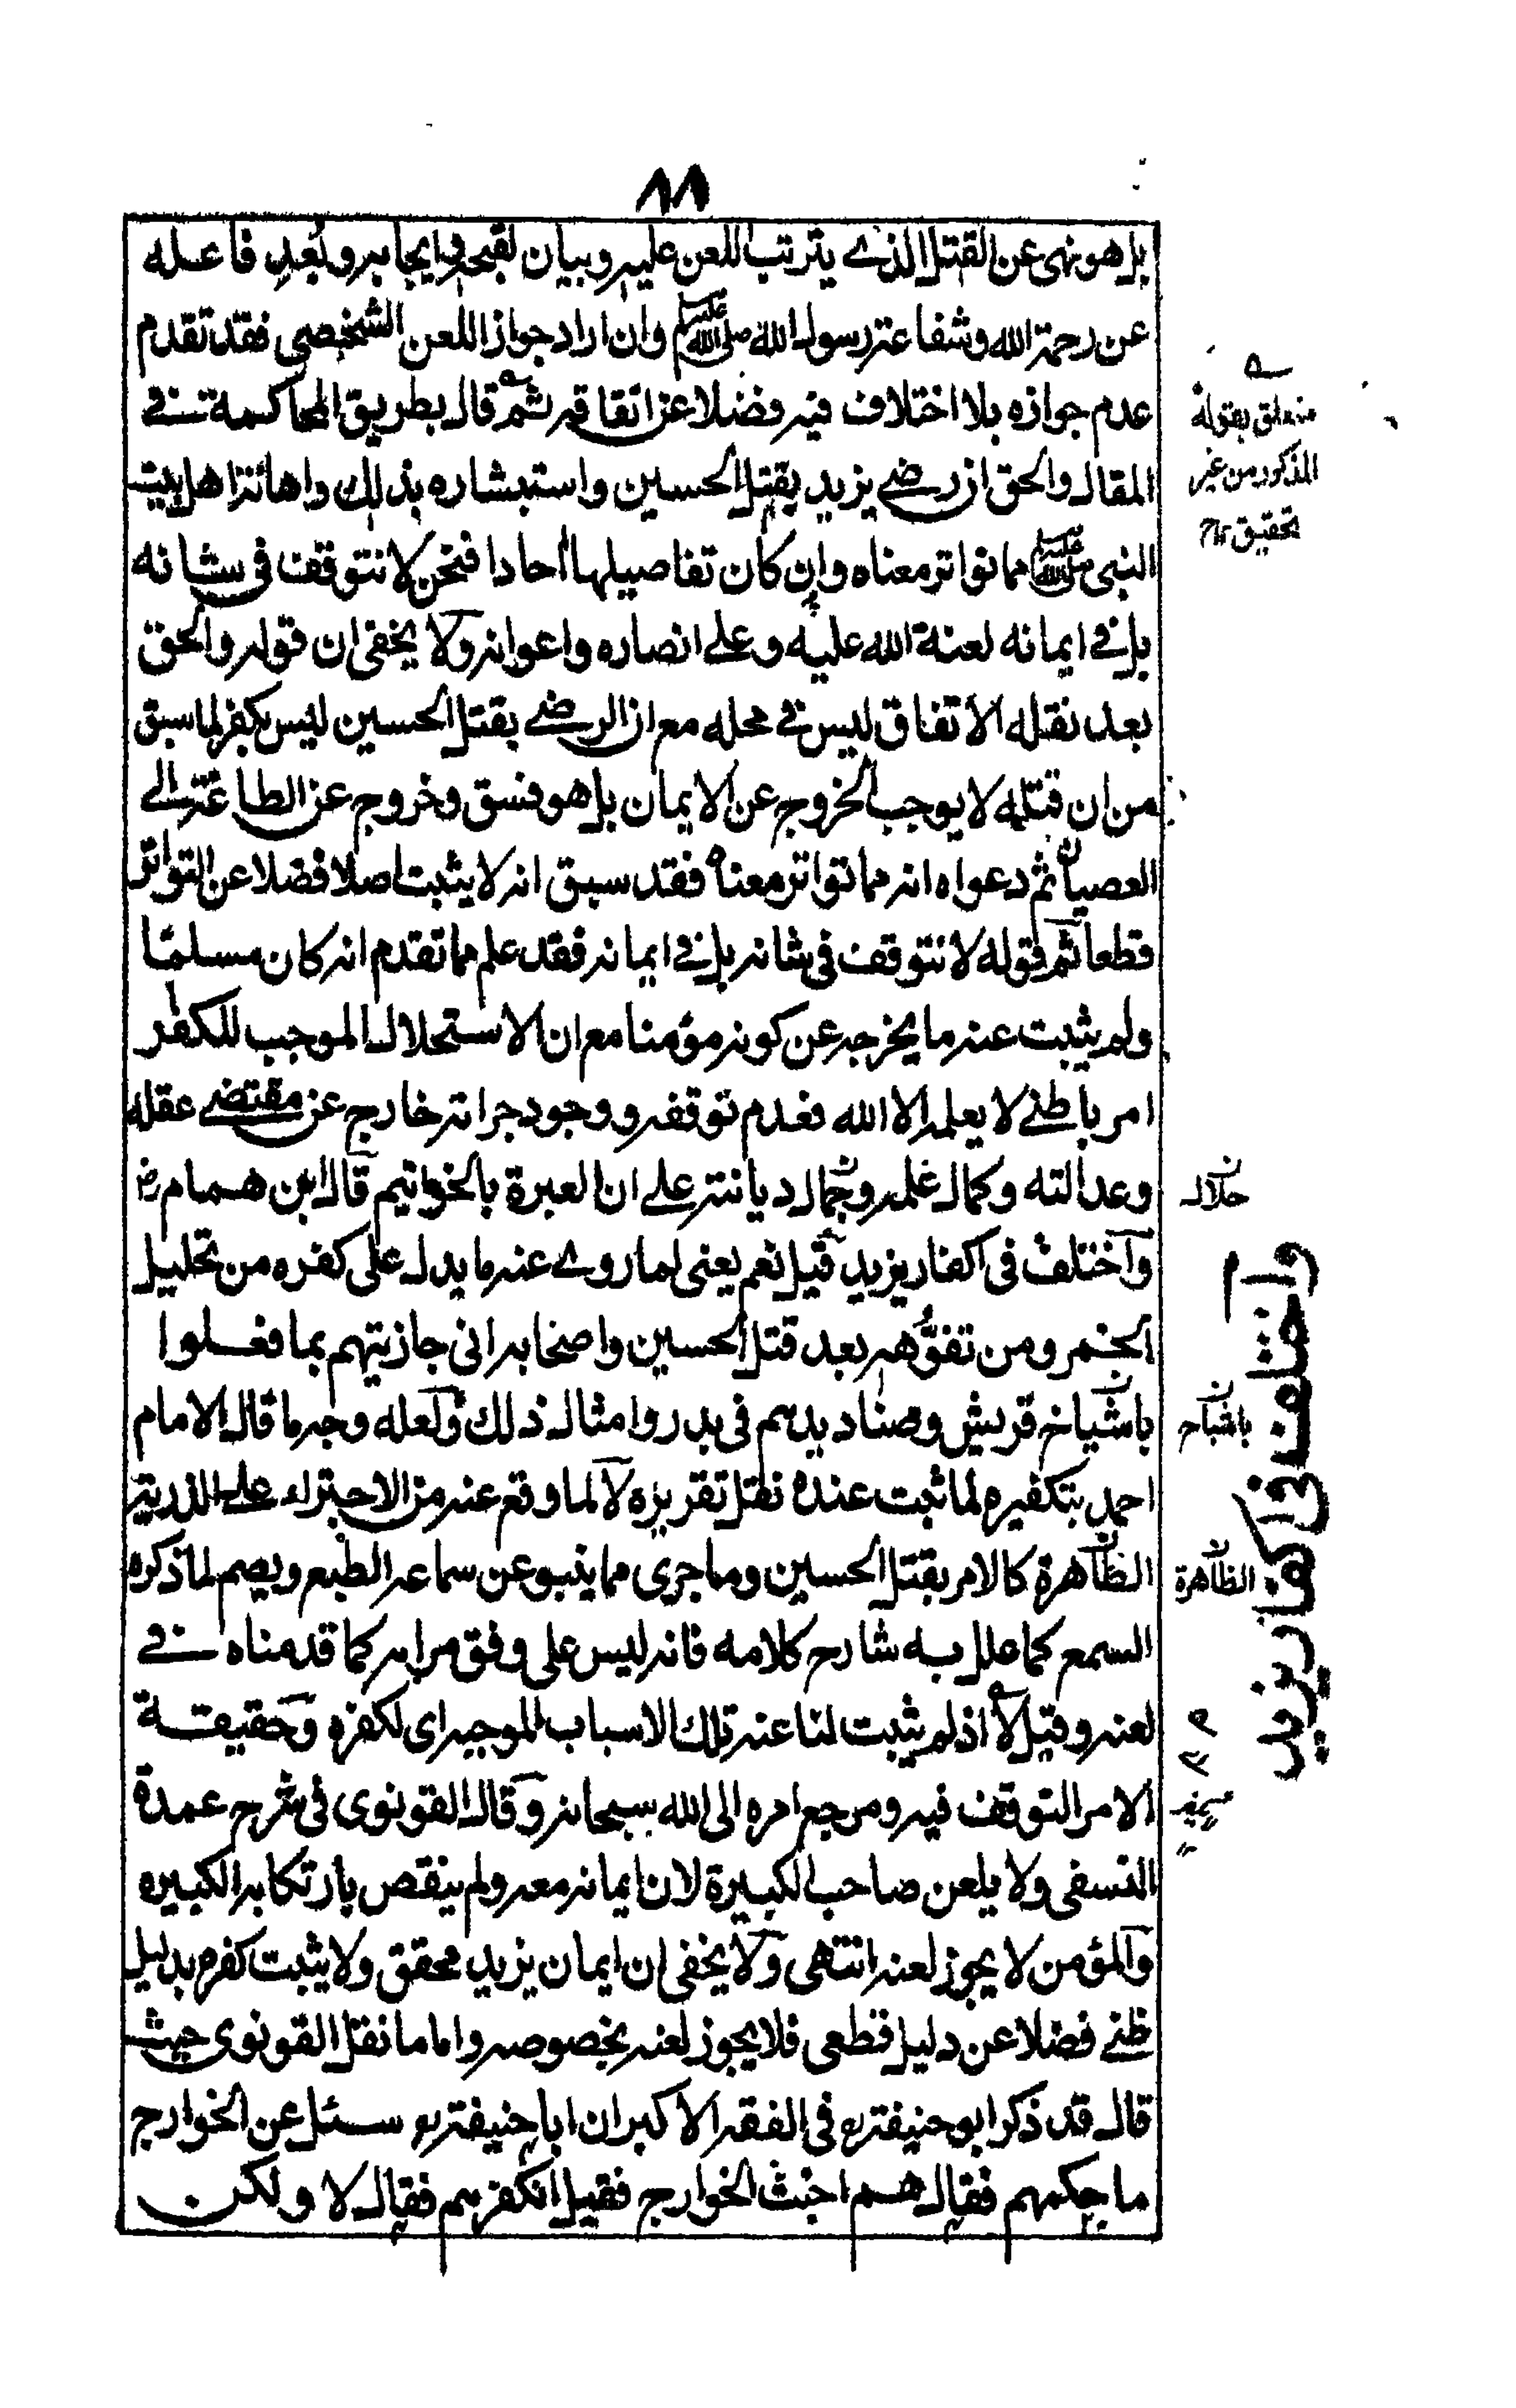 ٨٨
بل هو نهى عن القتل الذي يترتب اللعن عليه وبيان لقبحه وايجابه وبعد فاعله
عن رحمة الله وشفاعة رسول الله صلى الله عليه وسلم وان اراد جواز اللعن الشخصي فقد تقدم
عدم جوازه بلا اختلاف فيه فضلا عن اتفاقه ثم قال بطريق المحاكمة في
المقال والحق ان رضى يزيد بقتل الحسين واستبشاره بذلك واهانة اهل بيت
النبي صلى الله عليه وسلم مما تواتر معناه وان كان تفاصيلها احادا فنحن لا نتوقف في شانه
بل في ايمانه لعنة الله عليه وعلى انصاره واعوانه ولا يخفى ان قوله والحق
بعد نقله الاتفاق ليس في محله مع ان الرضى بقتل الحسين ليس بكفر لما سبق
من ان قتله لا يوجب الخروج عن الايمان بل هو فسق وخروج عن الطاعة الى
العصيان ثم دعواه انه مما تواتر معناه فقد سبق انه لا يثبت اصلا فضلا عن التواتر
قطعا ثم قوله لا نتوقف في شانه بل في ايمانه فقد علم مما تقدم انه كان مسلما
ولم يثبت عنه ما يخرجه عن كونه مؤمنا مع ان الاستحلال الموجب للكفر
امر باطني لا يعلمه الا الله فعدم توقفه ووجود جراته خارج عن مقتضى عقله
وعدالته وكمال علمه وجمال ديانته على ان العبرة بالخواتيم قال ابن همام رح
واختلف في اكفار يزيد قيل نعم يعني لما روي عنه ما يدل على كفره من تحليل
الخمر ومن تفوهه بعد قتل الحسين واصحابه اني جازيتهم بما فعلوا
باشياخ قريش وصناديدهم في بدر وامثال ذلك ولعله وجه ما قال الامام
احمد بتكفيره لما ثبت عنده نقل تقريره لا لما وقع عنه من الاجتراء على الذرية
الظاهرة كالامر بقتل الحسين وما جرى مما ينبو عن سماعه الطبع ويصم لما ذكره
السمع كما علل به شارح كلامه فانه ليس على وفق مرامه كما قدمناه في
لعنه وقيل لا اذ لم يثبت لنا عنه تلك الاسباب الموجبه اي لكفره وحقيقة
الامر التوقف فيه ومرجع امره الى الله سبحانه وقال القونوي في شرح عمدة
النسفي ولا يلعن صاحب الكبيرة لان ايمانه معه ولم ينقص بارتكابه الكبيره
والمؤمن لا يجوز لعنه انتهى ولا يخفى ان ايمان يزيد محقق ولا يثبت كفره بدليل
ظني فضلا عن دليل قطعي فلا يجوز لعنه بخصوصه واما ما نقل القونوي حيث
قال قد ذكر ابو حنيفة رح في الفقه الاكبر ان ابا حنيفة رح سئل عن الخوارج
ما حكمهم فقال هم اخبث الخوارج فقيل انكفرهم فقال لا ولكن
متعلق بقوله
المذكور من غير
تحقيق ١٢
جلال
باشباح
الظاهرة
واختلف في اكفار يزيد